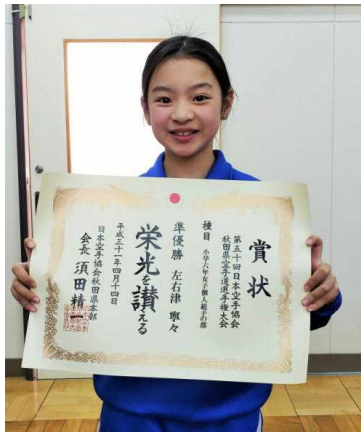 賞状
第五十回日本空手協会
秋田県空手道選手権大会
種目 小学六年女子個人組手の部
準優勝 左右津 寧々
栄光を讃える
平成三十一年四月十四日
日本空手協会秋田県本部
会長 須田精一